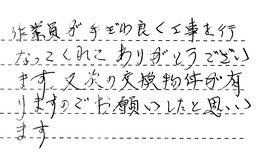 作業員が手ぎわ良く工事を行
なってくれて ありがとうござい
ます。又次の交換物件が有
りますのでお願いしたと思い
ます